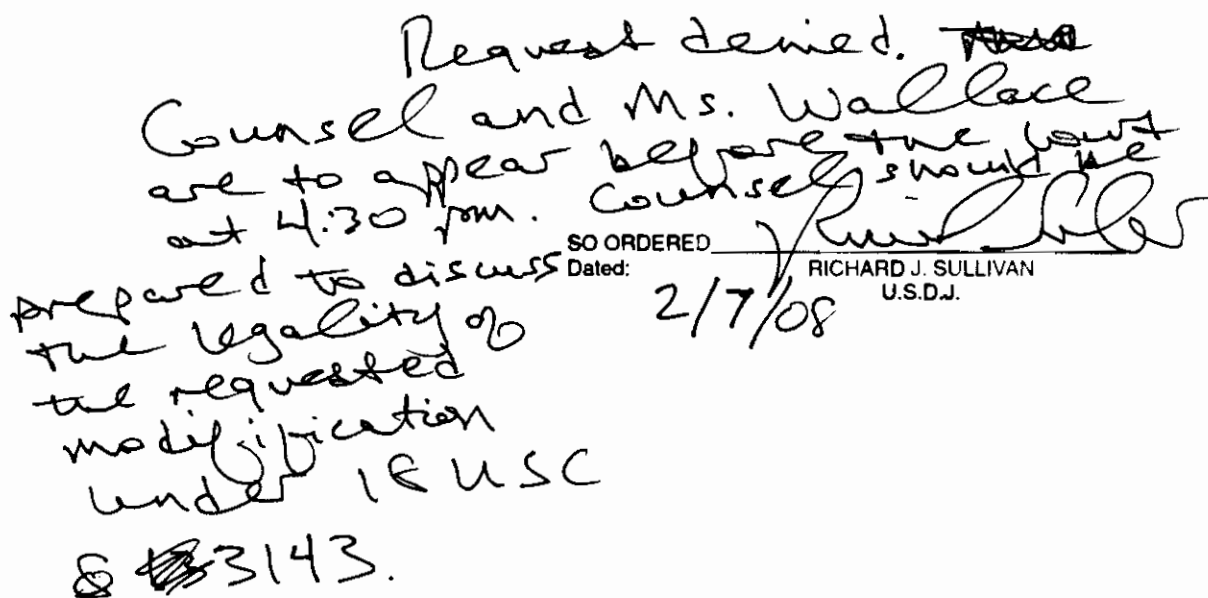 Request denied.
Counsel and Ms. Wallace
are to appear before the Court
at 4:30 pm. Counsel should be
prepared to discuss
the legality of
the requested
modification
under 18 USC
§ 3143.
SO ORDERED
Dated:
2/7/08
RICHARD J. SULLIVAN
U.S.D.J.